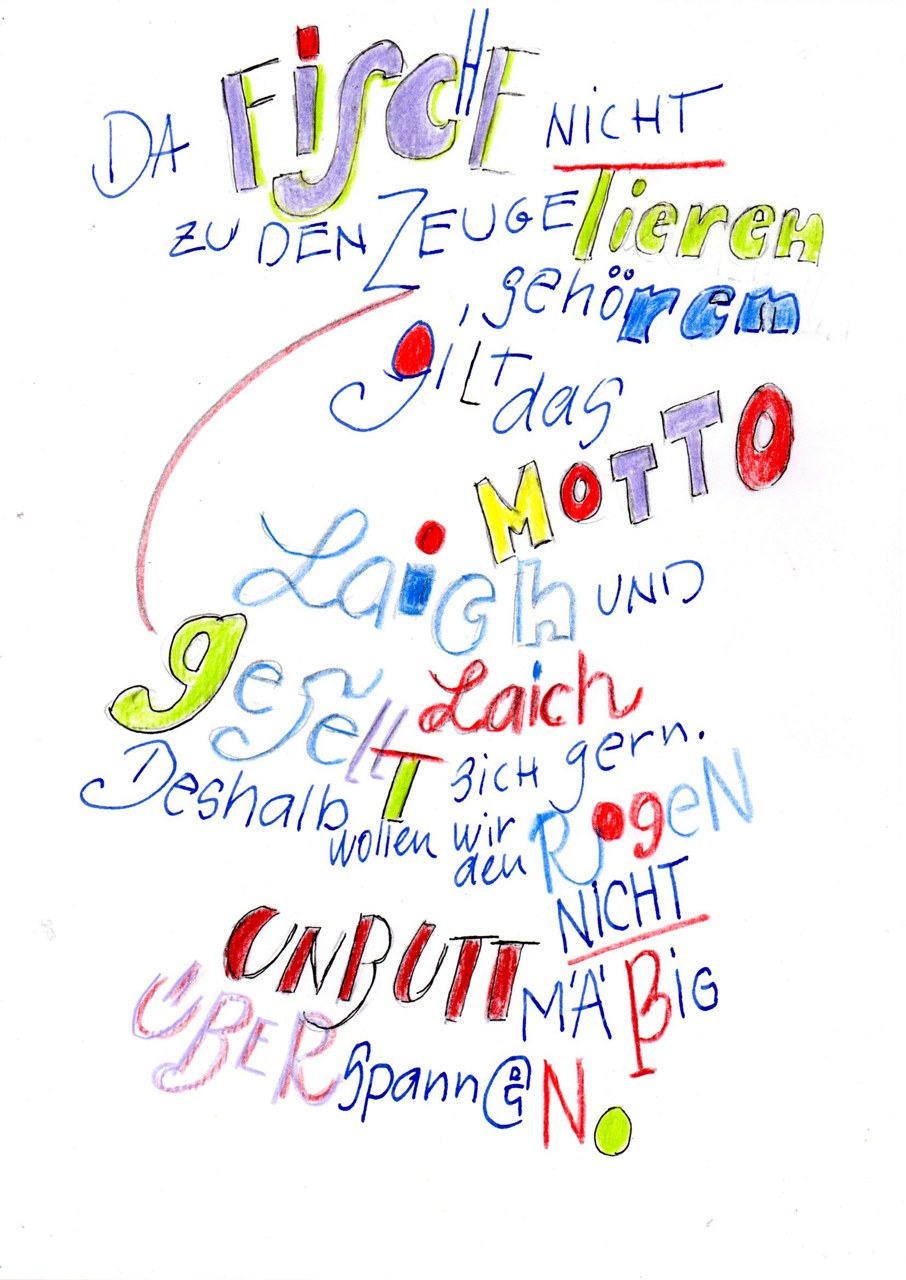 DA FiSCHE NiCHT
ZU DEN ZEUGETieren
, gehören
gilt das
MOTTO
Laich UND
gesellT Laich
sich gern.
Deshalb
wollen wir
den RogeN
NiCHT
UNBUTTMÄßiG
ÜBERspann@N.